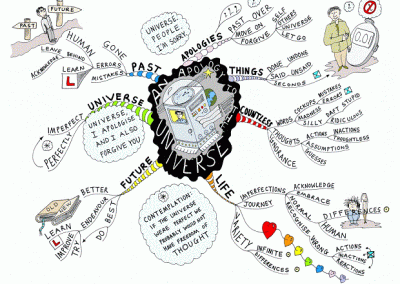 PAST
FUTURE
HUMAN
GONE
LEAVE BEHIND
ACKNOWLEDGE
LEARN
L
ERRORS
MISTAKES
PAST
UNIVERSE,
PEOPLE,
I'M SORRY.
APOLOGIES
PAST
OVER
MOVE ON
FORGIVE
SELF
OTHERS
UNIVERSE
LET GO
THINGS
DONE
UNDONE
SAID
UNSAID
SECONDS
COUNTLESS
WORDS
COCKUPS
MISTAKES
MADNESS
ERRORS
DAFT
STUPID
SILLY
RIDICULOUS
THOUGHTS
ACTIONS
INACTIONS
THOUGHTLESS
ASSUMPTIONS
IGNORANCE
AN APOLOGY TO
UNIVERSE
UNIVERSE
IMPERFECT
PERFECTLY
UNIVERSE,
I APOLOGISE
AND I ALSO
FORGIVE YOU
FUTURE
BETTER
ENDEAVOUR
DO BEST
LEARN
L
IMPROVE
TRY
CONTEMPLATION:
IF THE UNIVERSE
WERE PERFECT WE
PROBABLY WOULD NOT
HAVE FREEDOM OF
THOUGHT
LIFE
IMPERFECTIONS
ACKNOWLEDGE
EMBRACE
JOURNEY
NORMAL
HUMAN
RECOGNISE
WRONG
ACTIONS
INACTIONS
REACTIONS
DIFFERENCES
VARIETY
INFINITE
DIFFERENCES